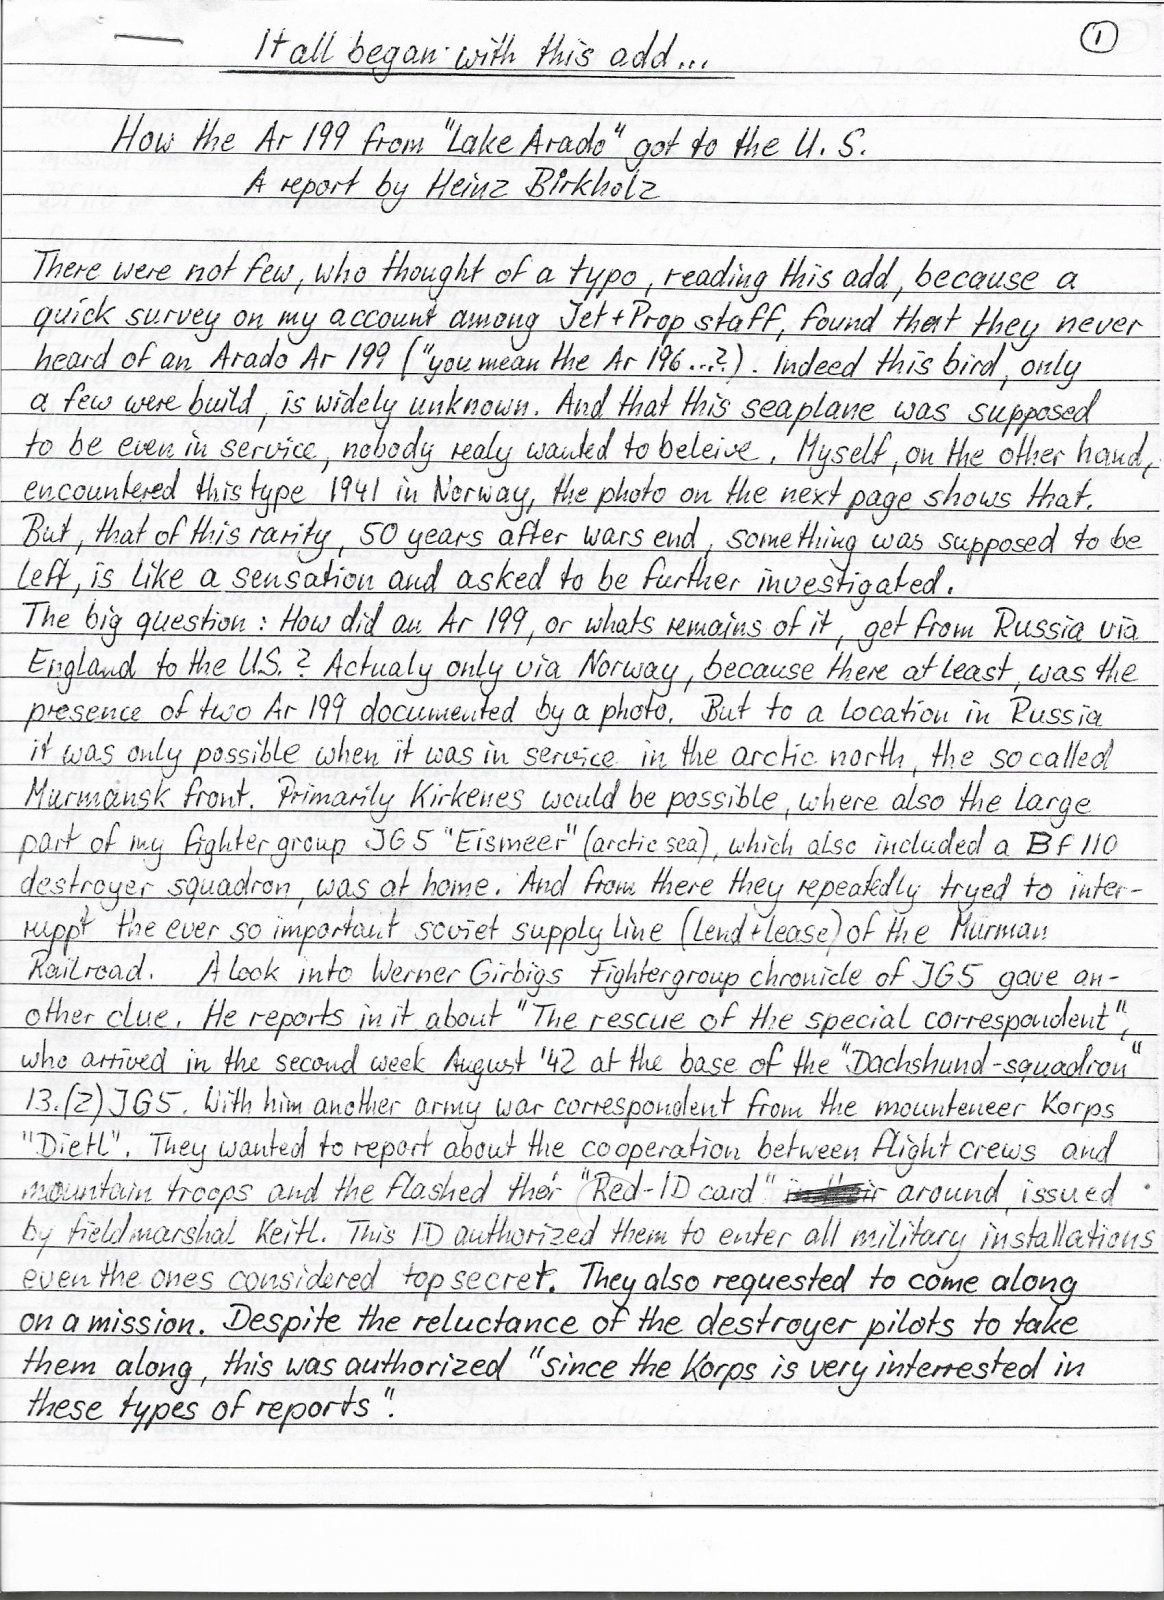 1
It all began with this add...
How the Ar 199 from "Lake Arado" got to the U.S.
A report by Heinz Birkholz
There were not few, who thought of a typo, reading this add, because a
quick survey on my account among Jet+Prop staff, found that they never
heard of an Arado Ar 199 ("you mean the Ar 196...?). Indeed this bird, only
a few were build, is widely unknown. And that this seaplane was supposed
to be even in service, nobody realy wanted to beleive. Myself, on the other hand,
encountered this type 1941 in Norway, the photo on the next page shows that.
But, that of this rarity, 50 years after wars end, something was supposed to be
left, is like a sensation and asked to be further investigated.
The big question: How did an Ar 199, or whats remains of it, get from Russia via
England to the U.S.? Actualy only via Norway, because there at least, was the
presence of two Ar 199 documented by a photo. But to a location in Russia
it was only possible when it was in service in the arctic north, the so called
Murmansk front. Primarily Kirkenes would be possible, where also the large
part of my fighter group JG5 "Eismeer" (arctic sea), which also included a Bf 110
destroyer squadron, was at home. And from there they repeatedly tryed to inter-
ruppt the ever so important soviet supply line (lend+lease) of the Murman
Railroad. A look into Werner Girbigs Fightergroup chronicle of JG5 gave an-
other clue. He reports in it about "The rescue of the special correspondent",
who arrived in the second week August '42 at the base of the "Dachshund-squadron"
13.(Z)JG5. With him another army war correspondent from the mounteneer Korps
"Dietl". They wanted to report about the cooperation between flight crews and
mountain troops and the flashed their "Red-ID card" around, issued
by fieldmarshal Keitl. This ID authorized them to enter all military installations
even the ones considered top secret. They also requested to come along
on a mission. Despite the reluctance of the destroyer pilots to take
them along, this was authorized "since the Korps is very interrested in
these types of reports".